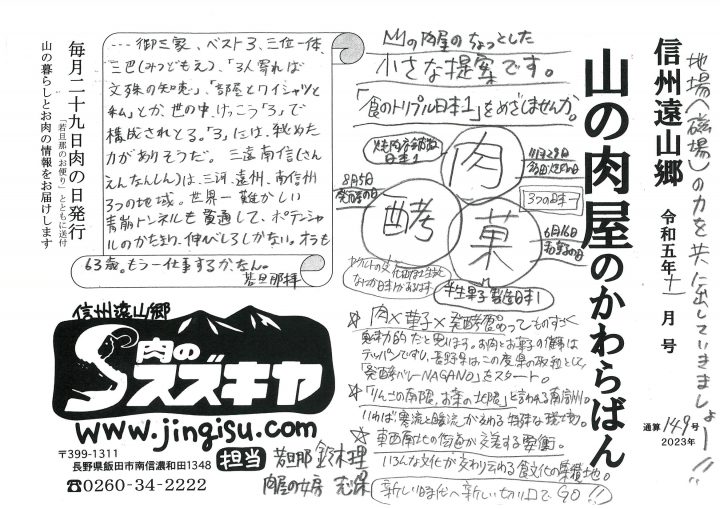 地場(磁場)の力を共に出していきましょー!!
信州遠山郷
令和五年十一月号
山の肉屋のかわらばん
通算149号
2023年
山の肉屋のちょっとした
小さな提案です。
「食のトリプル日本1」をめざしませんか。
焼肉店部数
日本1
肉
11月29日
8月5日
発酵の日
酵
菓
3つの日本一
6月16日
和菓子の日
半生菓子製造日本1
☆ 肉×菓子×発酵食ってものすごく
魅力的だと思います。お肉とお茶の食事は
テッパンですし、長野県はこの度県の取組として、
「発酵バレーNAGANO」をスタート。
☆「りんごの南限、お茶の北限」と言われる南信州。
いわば寒流と暖流が交わる特殊な環境。
☆ 東西南北の街道が交差する要衝。
いろんな文化が交わり合う食文化の集積地。
新しい時代へ新しい切り口でGO!!
・・・御三家、ベスト3、三位一体、
三巴(みつどもえ)、「3人寄れば
文殊の知恵」、「部屋とワイシャツと
私」とか、世の中、けっこう「3」で
構成されとる。「3」には、秘めた
力がありそうだ。 三遠南信(さん
えんなんしん)は、三河、遠州、南信州
3つの地域。世界一難かしい
青崩トンネルも貫通して、ポテンシャ
ルのかたまり、伸びしろしかない。オラも
63歳。もう一仕事するか、なん。
若旦那拝
毎月二十九日肉の日発行
「若旦那のお便り」とともに送付
山の暮らしとお肉の情報をお届けします
信州遠山郷
肉の
スズキヤ
www.jingisu.com
〒399-1311
長野県飯田市南信濃和田1348
☎0260-34-2222
担当 若旦那 鈴木理
肉屋の女房 志保